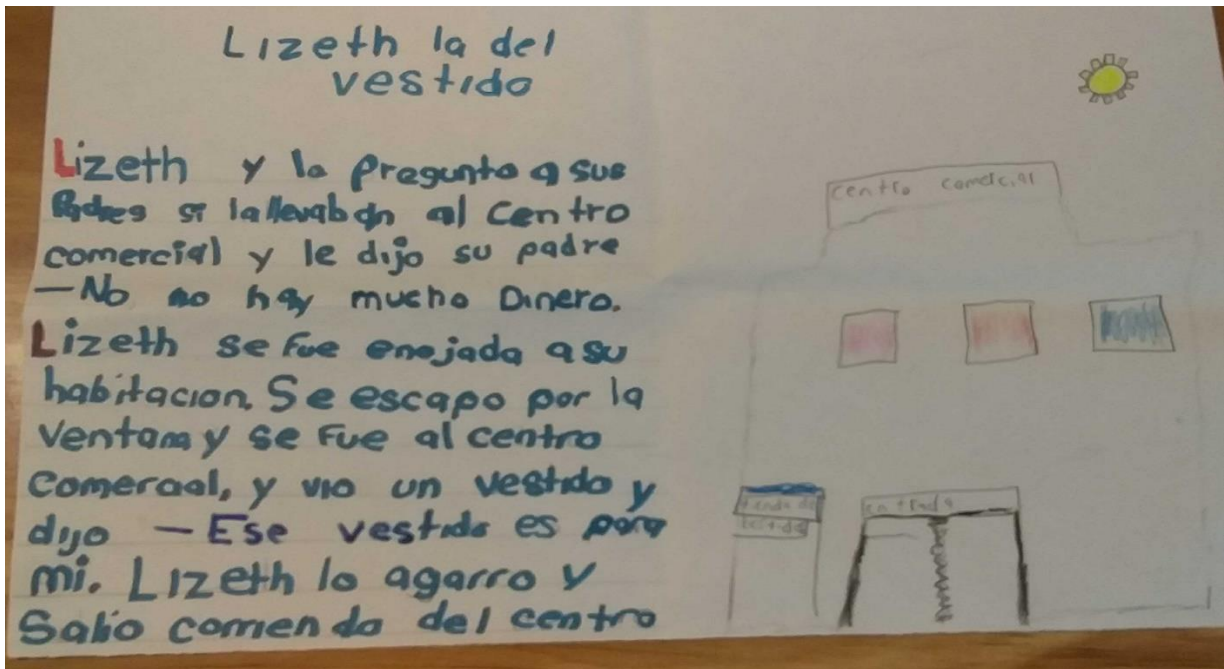 Lizeth la del
vestido
Lizeth y la Pregunto a sus
Padres si lallevaban al centro
comercial y le dijo su padre
—No no hay mucho Dinero.
Lizeth se fue enojada a su
habitacion. Se escapo por la
Ventana y se fue al centro
Comercial, y vio un vestido y
dijo —Ese vestido es para
mi. Lizeth lo agarro y
Salio corriendo del centro
centro comercial
tienda de
vestidos
entrada